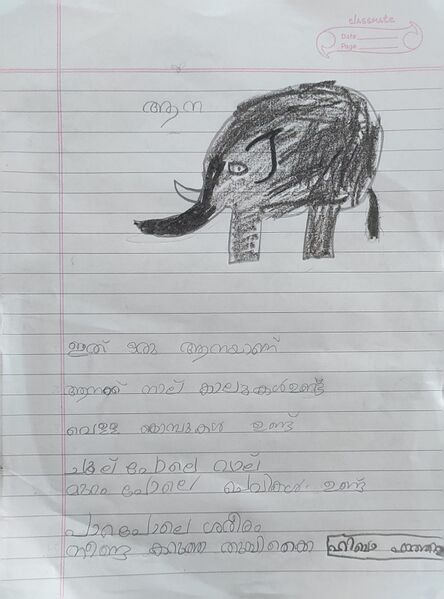 classmate
Date
Page
ആന
ഇത് ഒരു ആനയാണ്
ആനക്ക് നാല് കാലുകൾഉണ്ട്
വെള്ള കൊമ്പുകൾ ഉണ്ട്
ചൂല് പോലെ വാല്
മുറം പോലെ ചെവികൾ ഉണ്ട്
പാറപോലെ ശരീരം
നീണ്ട കറുത്ത തുമ്പിക്കൈ